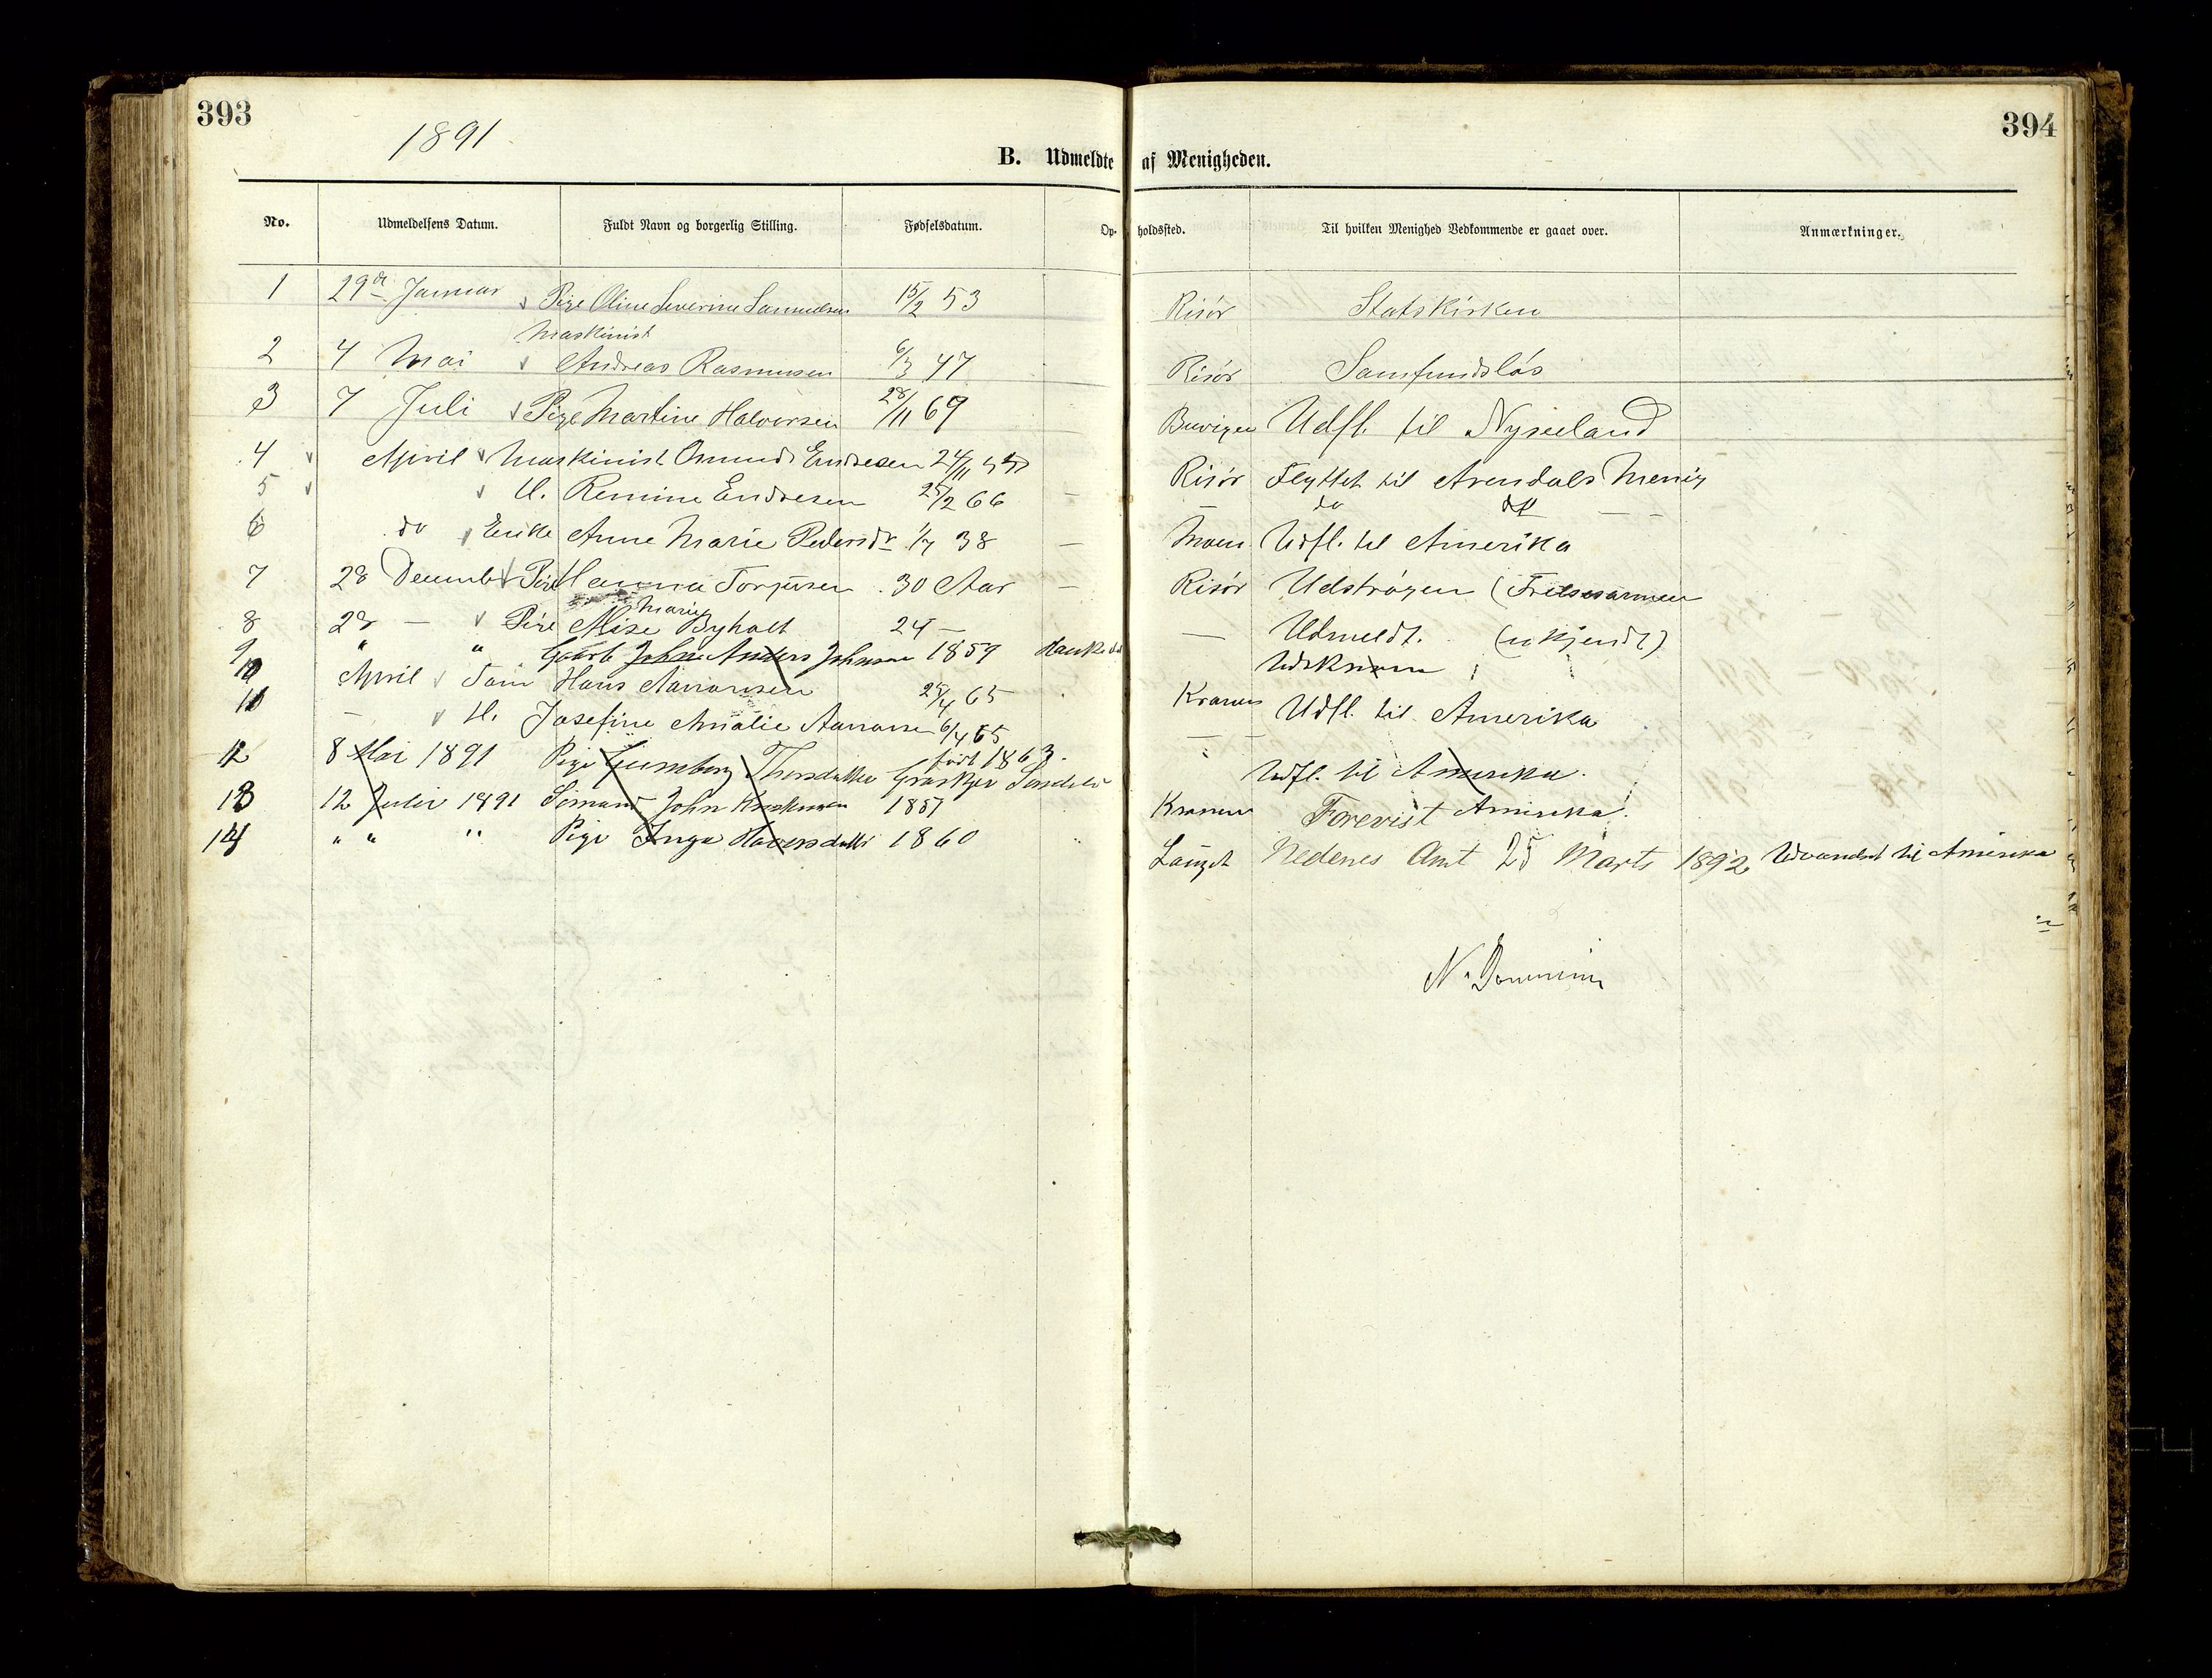 393
394
1891
B. Udmeldte af Menigheden.
No. Udmeldelsens Datum. Fuldt Navn og borgerlig Stilling. Fødselsdatum. Op- holdssted. Til hvilken Menighed Vedkommende er gaaet over. Anmærkninger.
1 29de Januar Pige Oline Severine Samuelsen 15/2 53 Risör Statskirken
Maskinist
2 4 Mai Andreas Rasmusen 6/3 47 Risör Samfundslös
3 7 Juli Pige Martine Halvorsen 28/11 69 Buvigen Udfl. til Nyseeland
4 April Maskinist Omund Endresen 24/11 Risör Flyttet til Arendals Menig
5 H. Remine Endresen 25/2 66 — do
6 do Enke Anne Marie Pedersdr 1/7 38 — Moen Udfl. til Amerika
7 28 Decembr Pige Hanna Torjusen 30 Aar — Risör Udströgen (Frelsesarmeen
Marie
8 28 — Pige Elise Byholt 24 — — Udmeldt. (ukjendt)
9 " " Gaarb John Anders Johnsen 1859
10 April Töm Hans Aanonsen 25/4 65 Kranen Udfl. til Amerika
11 — H. Josefine Amalie Aanonsen 6/4 65 — —
födt 1863.
12 8 Mai 1891 Pige Gunnborg Thorsdatter Graskjer Söndeled Udfl. til Amerika.
13 12 Julir 1891 Sömand John Kristensen 1857 Kranen Forevist Amerika.
14 " " " Pige Inga Halversdatter 1860 " Lauget Nedenes Amt 25 Marts 1892 Udvandret til Amerika